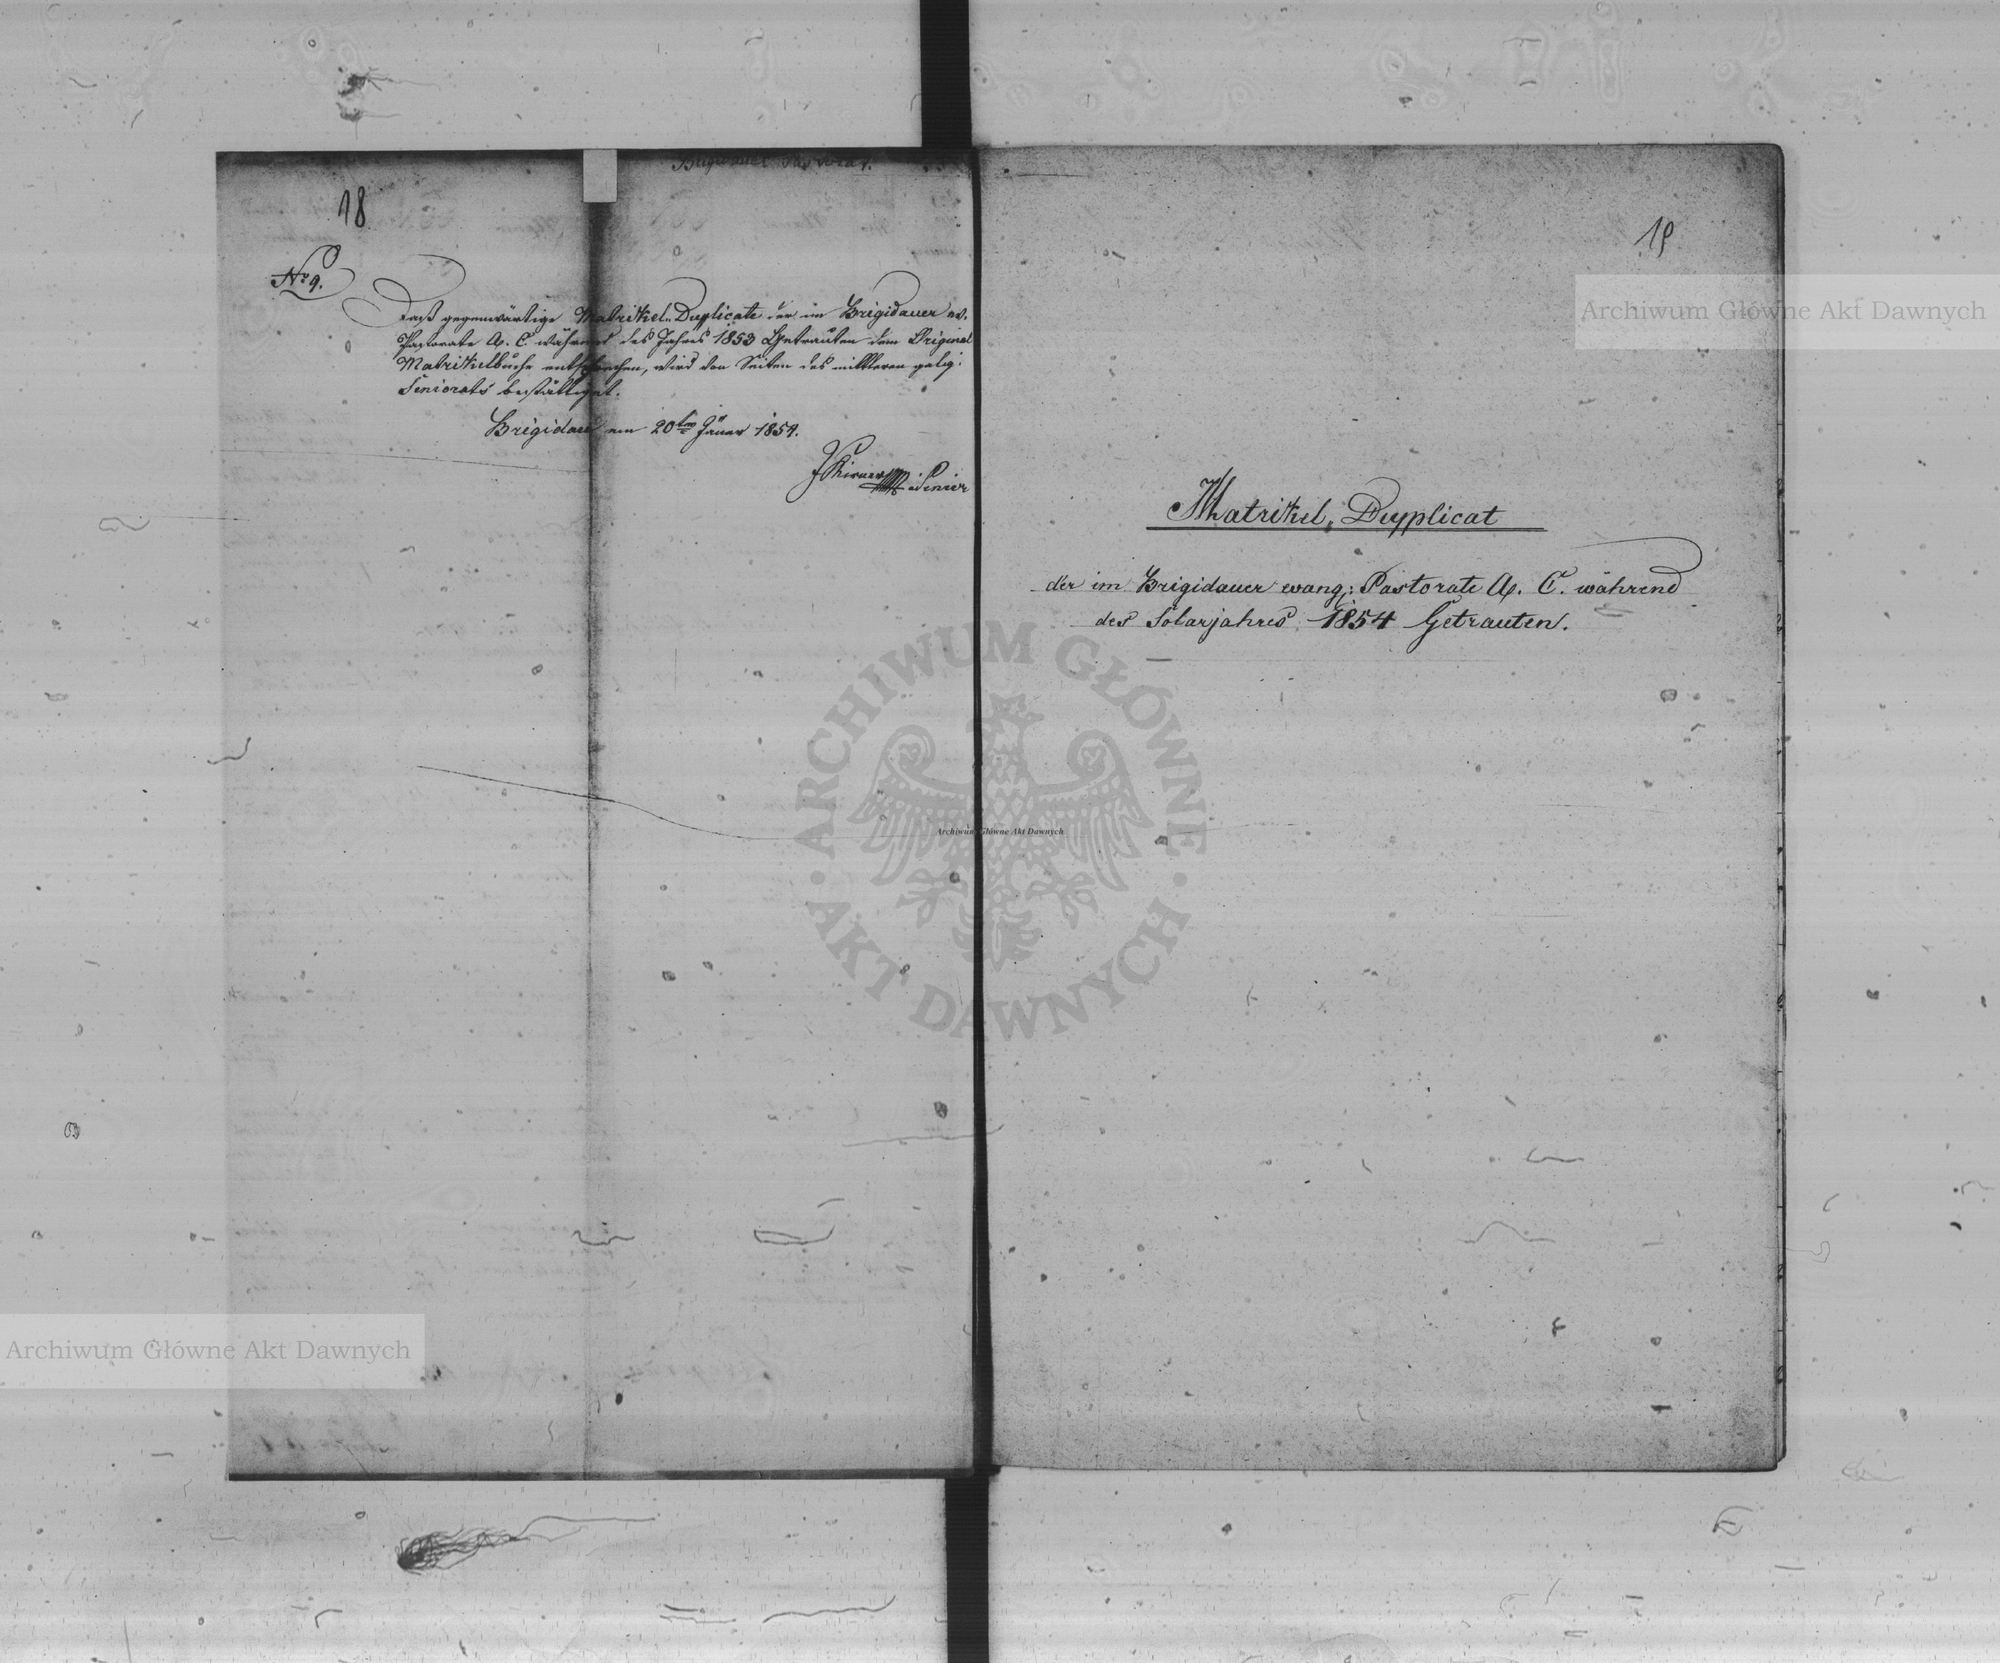 Brigidauer Pastorat.
18
No 9.
Daß gegenwärtige Matrikel-Duplicate der im Brigidauer ev.
Pastorate A. C. während des Jahres 1853 Getrauten dem Original
Matrikelbuche entsprechen, wird von Seiten des mittleren galiz:
Seniorats bestättiget.
Brigidau am 20ten Jäner 1854.
Senior
19
Matrikel, Duplicat
der im Brigidauer evang: Pastorate A. C. während
des Solarjahres 1854 Getrauten.
Archiwum Główne Akt Dawnych
ARCHIWUM GŁÓWNE AKT DAWNYCH
Archiwum Główne Akt Dawnych
Archiwum Główne Akt Dawnych